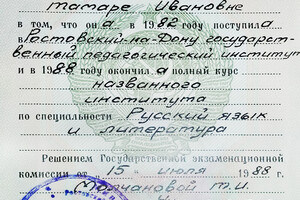 Тамаре Ивановне
в том, что он а в 1982 году поступил а
в Ростовский-на-Дону государст-
венный педагогический институт
и в 1988 году окончил а полный курс
названного
института
по специальности Русский язык
и литература
Решением Государственной экзаменационной
комиссии от „15“ июля 1988 г.
Молчановой Т.И.